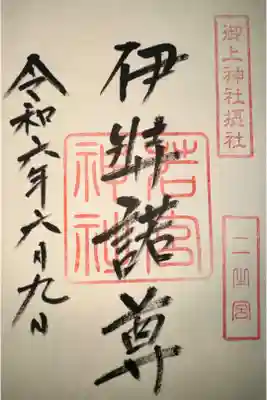 御上神社摂社
二之宮
伊弉諾尊
若宮神社
令和六年六月九日